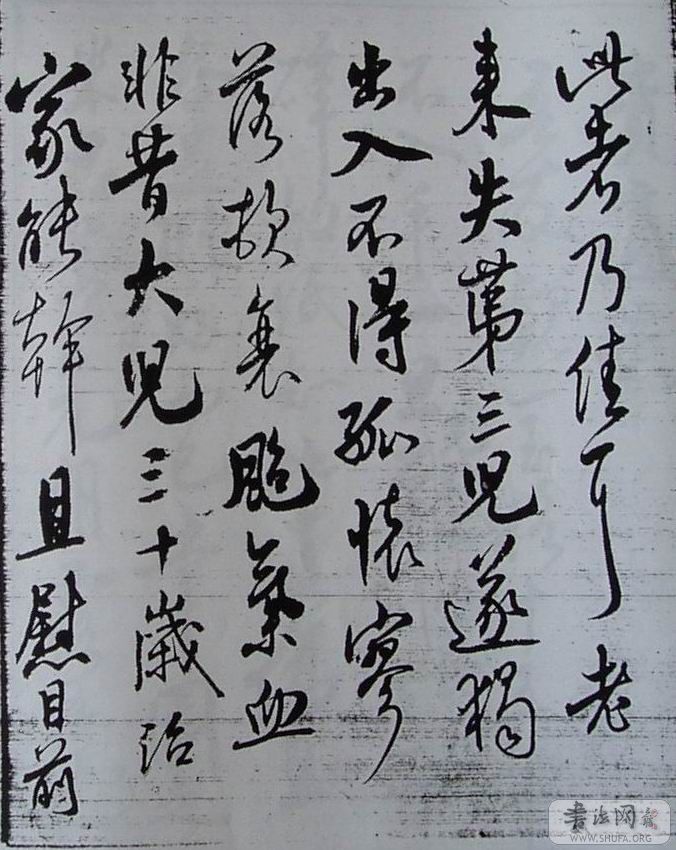 此者乃佳耳老
來失第三兒遂獨
出入不得孤懷寥
落頓衰颯氣血
非昔大兒三十歲治
家能幹且慰目前
書法网
WWW.SHUFA.ORG